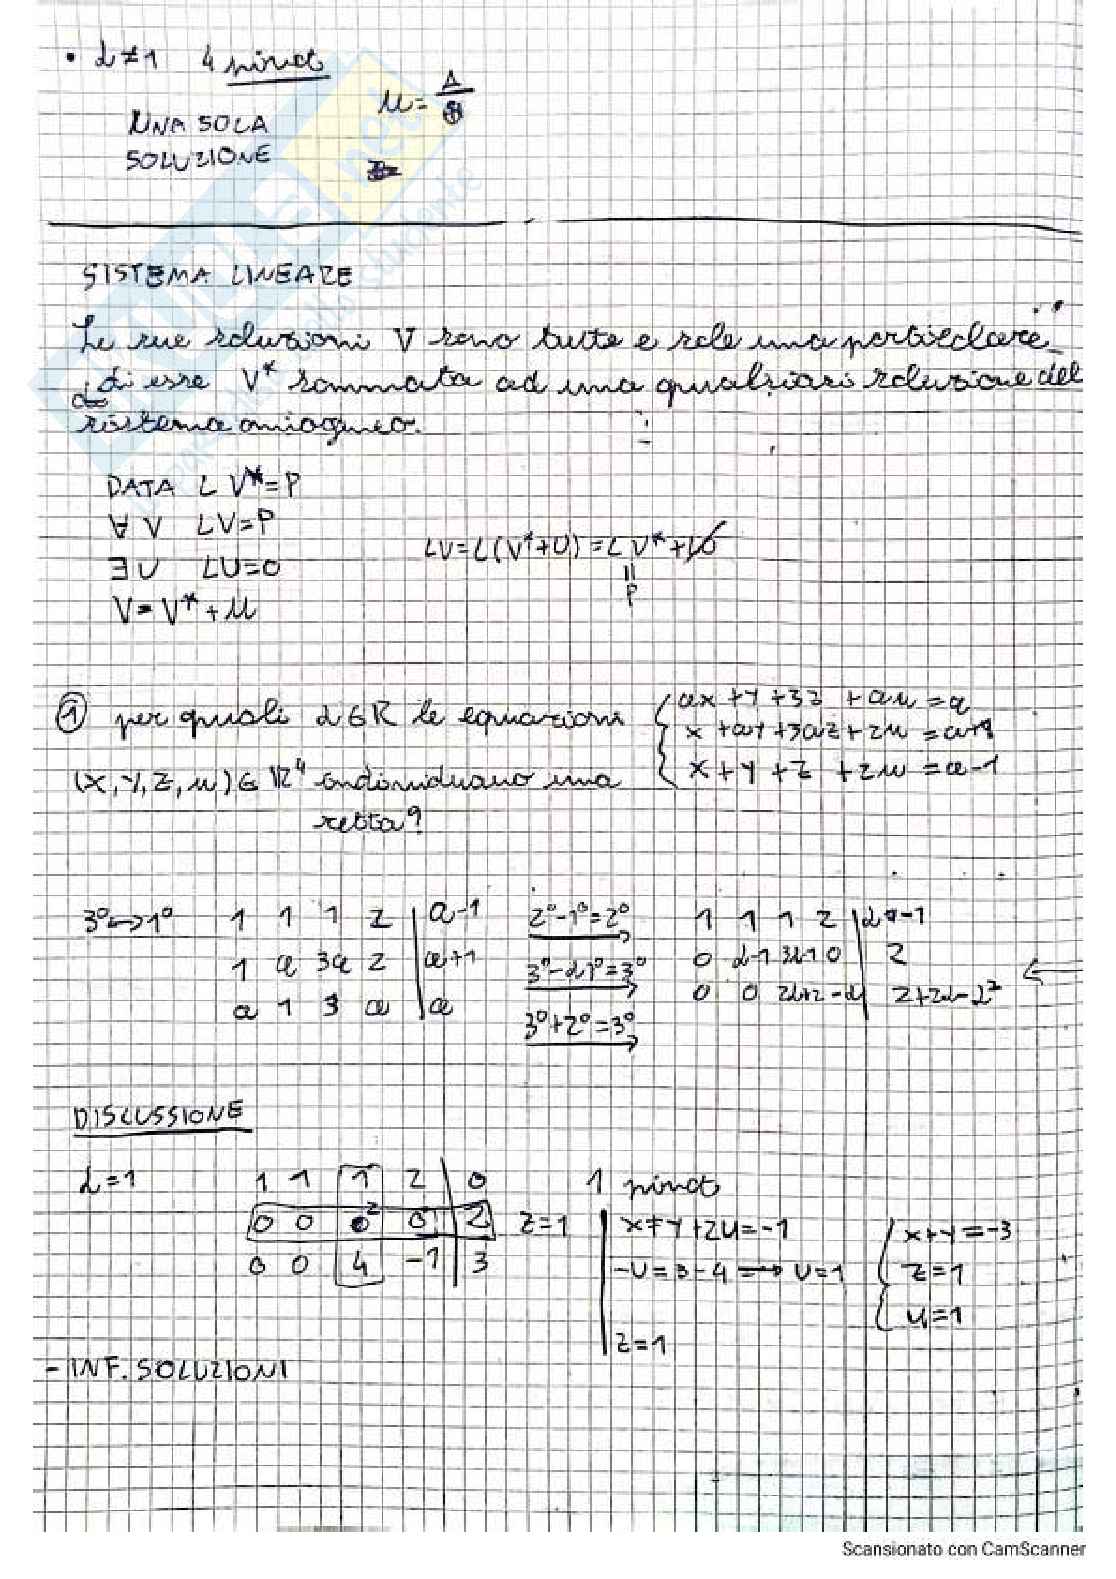 • α≠1 4 pivot
UNA SOLA
SOLUZIONE
SISTEMA LINEARE
Le sue soluzioni V sono tutte e sole una particolare
di esse V* sommata ad una qualsiasi soluzione del
sistema omogeneo.
DATA L V*=P
∀ V LV=P
∃ U LU=0
V=V*+u
LV=L(V*+U)=L V*+LU
=
P
① per quali α∈R le equazioni
(X,Y,Z,u)∈R⁴ individuano una
retta?
ax+y+3z+au=a
x+ay+3az+2u=a+1
x+y+z+2u=a-1
3°↔1° 1 1 1 2 | a-1
1 a 3a 2 | a+1
a 1 3 a | a
2°-1°=2°
3°-α1°=3°
3°+2°=3°
1 1 1 2 | α-1
0 α-1 3α-1 0 | 2
0 0 2α+2 -α | 2+2α-α²
DISCUSSIONE
α=1
1 1 1 2 | 0
0 0 2 0 | 2 Z=1
0 0 4 -1 | 3
1 pivot
x+y+2u=-1
-U=3-4 → U=1
Z=1
x+y=-3
z=1
u=1
- INF. SOLUZIONI
Scansionato con CamScanner